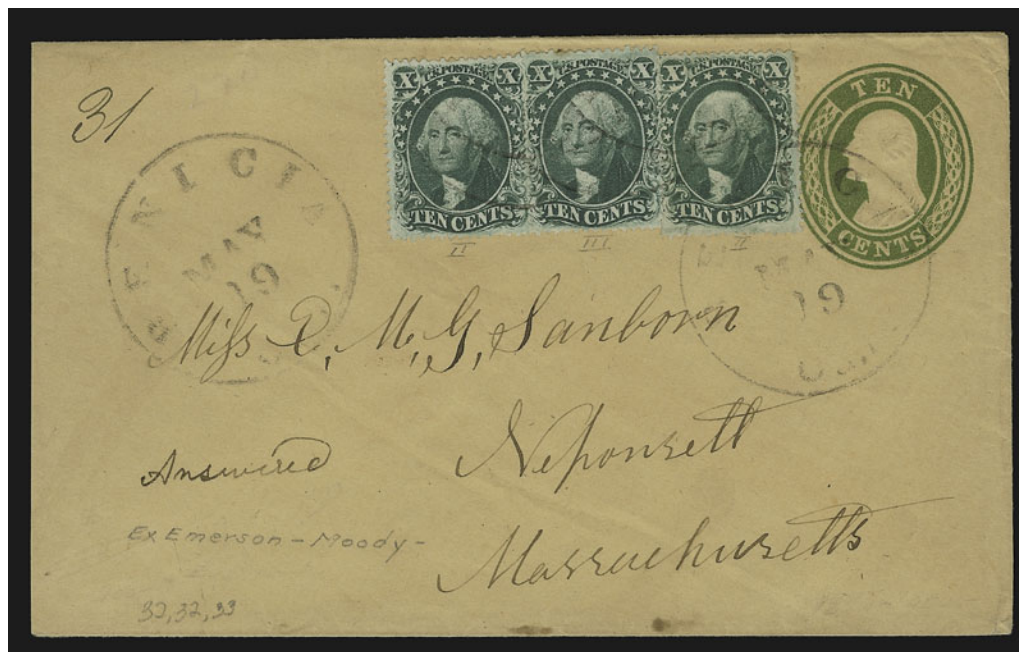 31
X U.S. POSTAGE X
TEN CENTS
X U.S. POSTAGE X
TEN CENTS
X U.S. POSTAGE X
TEN CENTS
TEN
CENTS
II
III
II
BENICIA
MAY
19
MAY
19
CAL.
Miss C. M. G. Sanborn
Neponsett
Massachusetts
Answered
Ex Emerson - Moody -
32, 32, 33